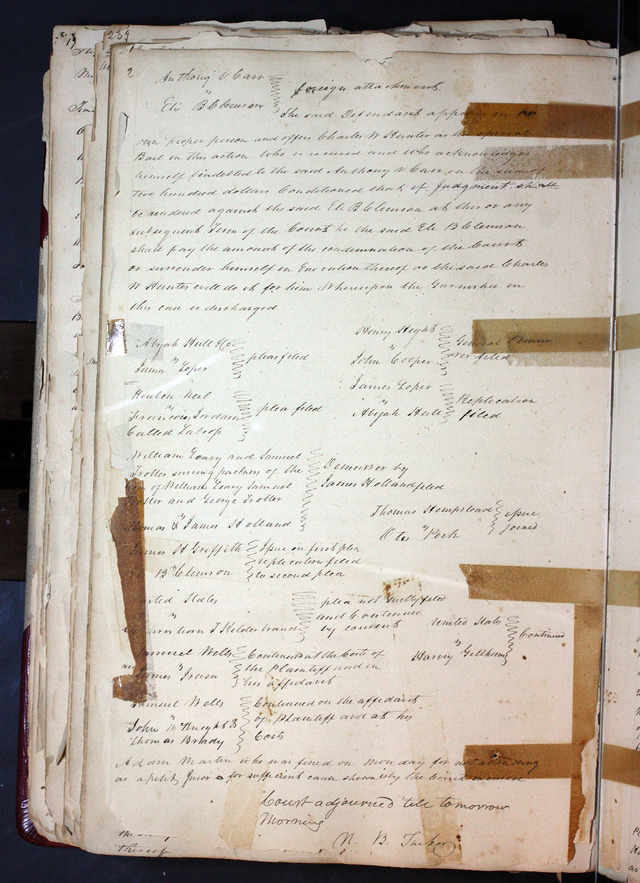 239
2
Anthony V Carr
vs
Eli B Clemson
foreign attachment
The said Defendant appears in his
own proper person and offers Charles W Hunter as his special
Bail in this action who is received and who acknowledges
himself indebted to the said Anthony V Carr in the sum of
two hundred dollars Conditioned that if judgment shall
be rendered against the said Eli B Clemson at this or any
subsequent Term of the Court he the said Eli B Clemson
shall pay the amount of the condemnation of the Court
or surrender himself in Execution thereof or the said Charles
W Hunter will do it for him Whereupon the Garnishee in
this case is discharged
Abijah Hull &Co
vs
James Loper
plea filed
Henry Hight
vs
John Cooper
General Demur
rer filed
Reuben Neel
vs
Francois Jordan
Called Laboop
plea filed
James Loper
vs
Abijah Hull
Replication
filed
William Geary and Samuel
Trotter surviving partners of the
of William Geary Samuel
Trotter and George Trotter
vs
Thomas & James Holland
Demurrer by
James Holland filed
Thomas Hempstead
vs
Peck
issue
joined
James H Griffith
vs
Eli B Clemson
Issue on first plea
replication filed
to second plea
United States
vs
T Helderbrand
plea not Guilty filed
and Continued
by consent
United States
vs
Harvey Gillham
Continued
Samuel Wells
vs
James Irvin
Continued at the Costs of
the Plaintiff and on
his affidavit
Samuel Wells
vs
John McKnight &
Thomas Brady
Continued on the affidavit
of Plaintiff and at his
Costs
Adam Martin who was fined on Monday for not attending
as a petit Juror for sufficient cause shewn by the Court
Court adjourned till tomorrow
Morning
N. B. Tucker
thereof